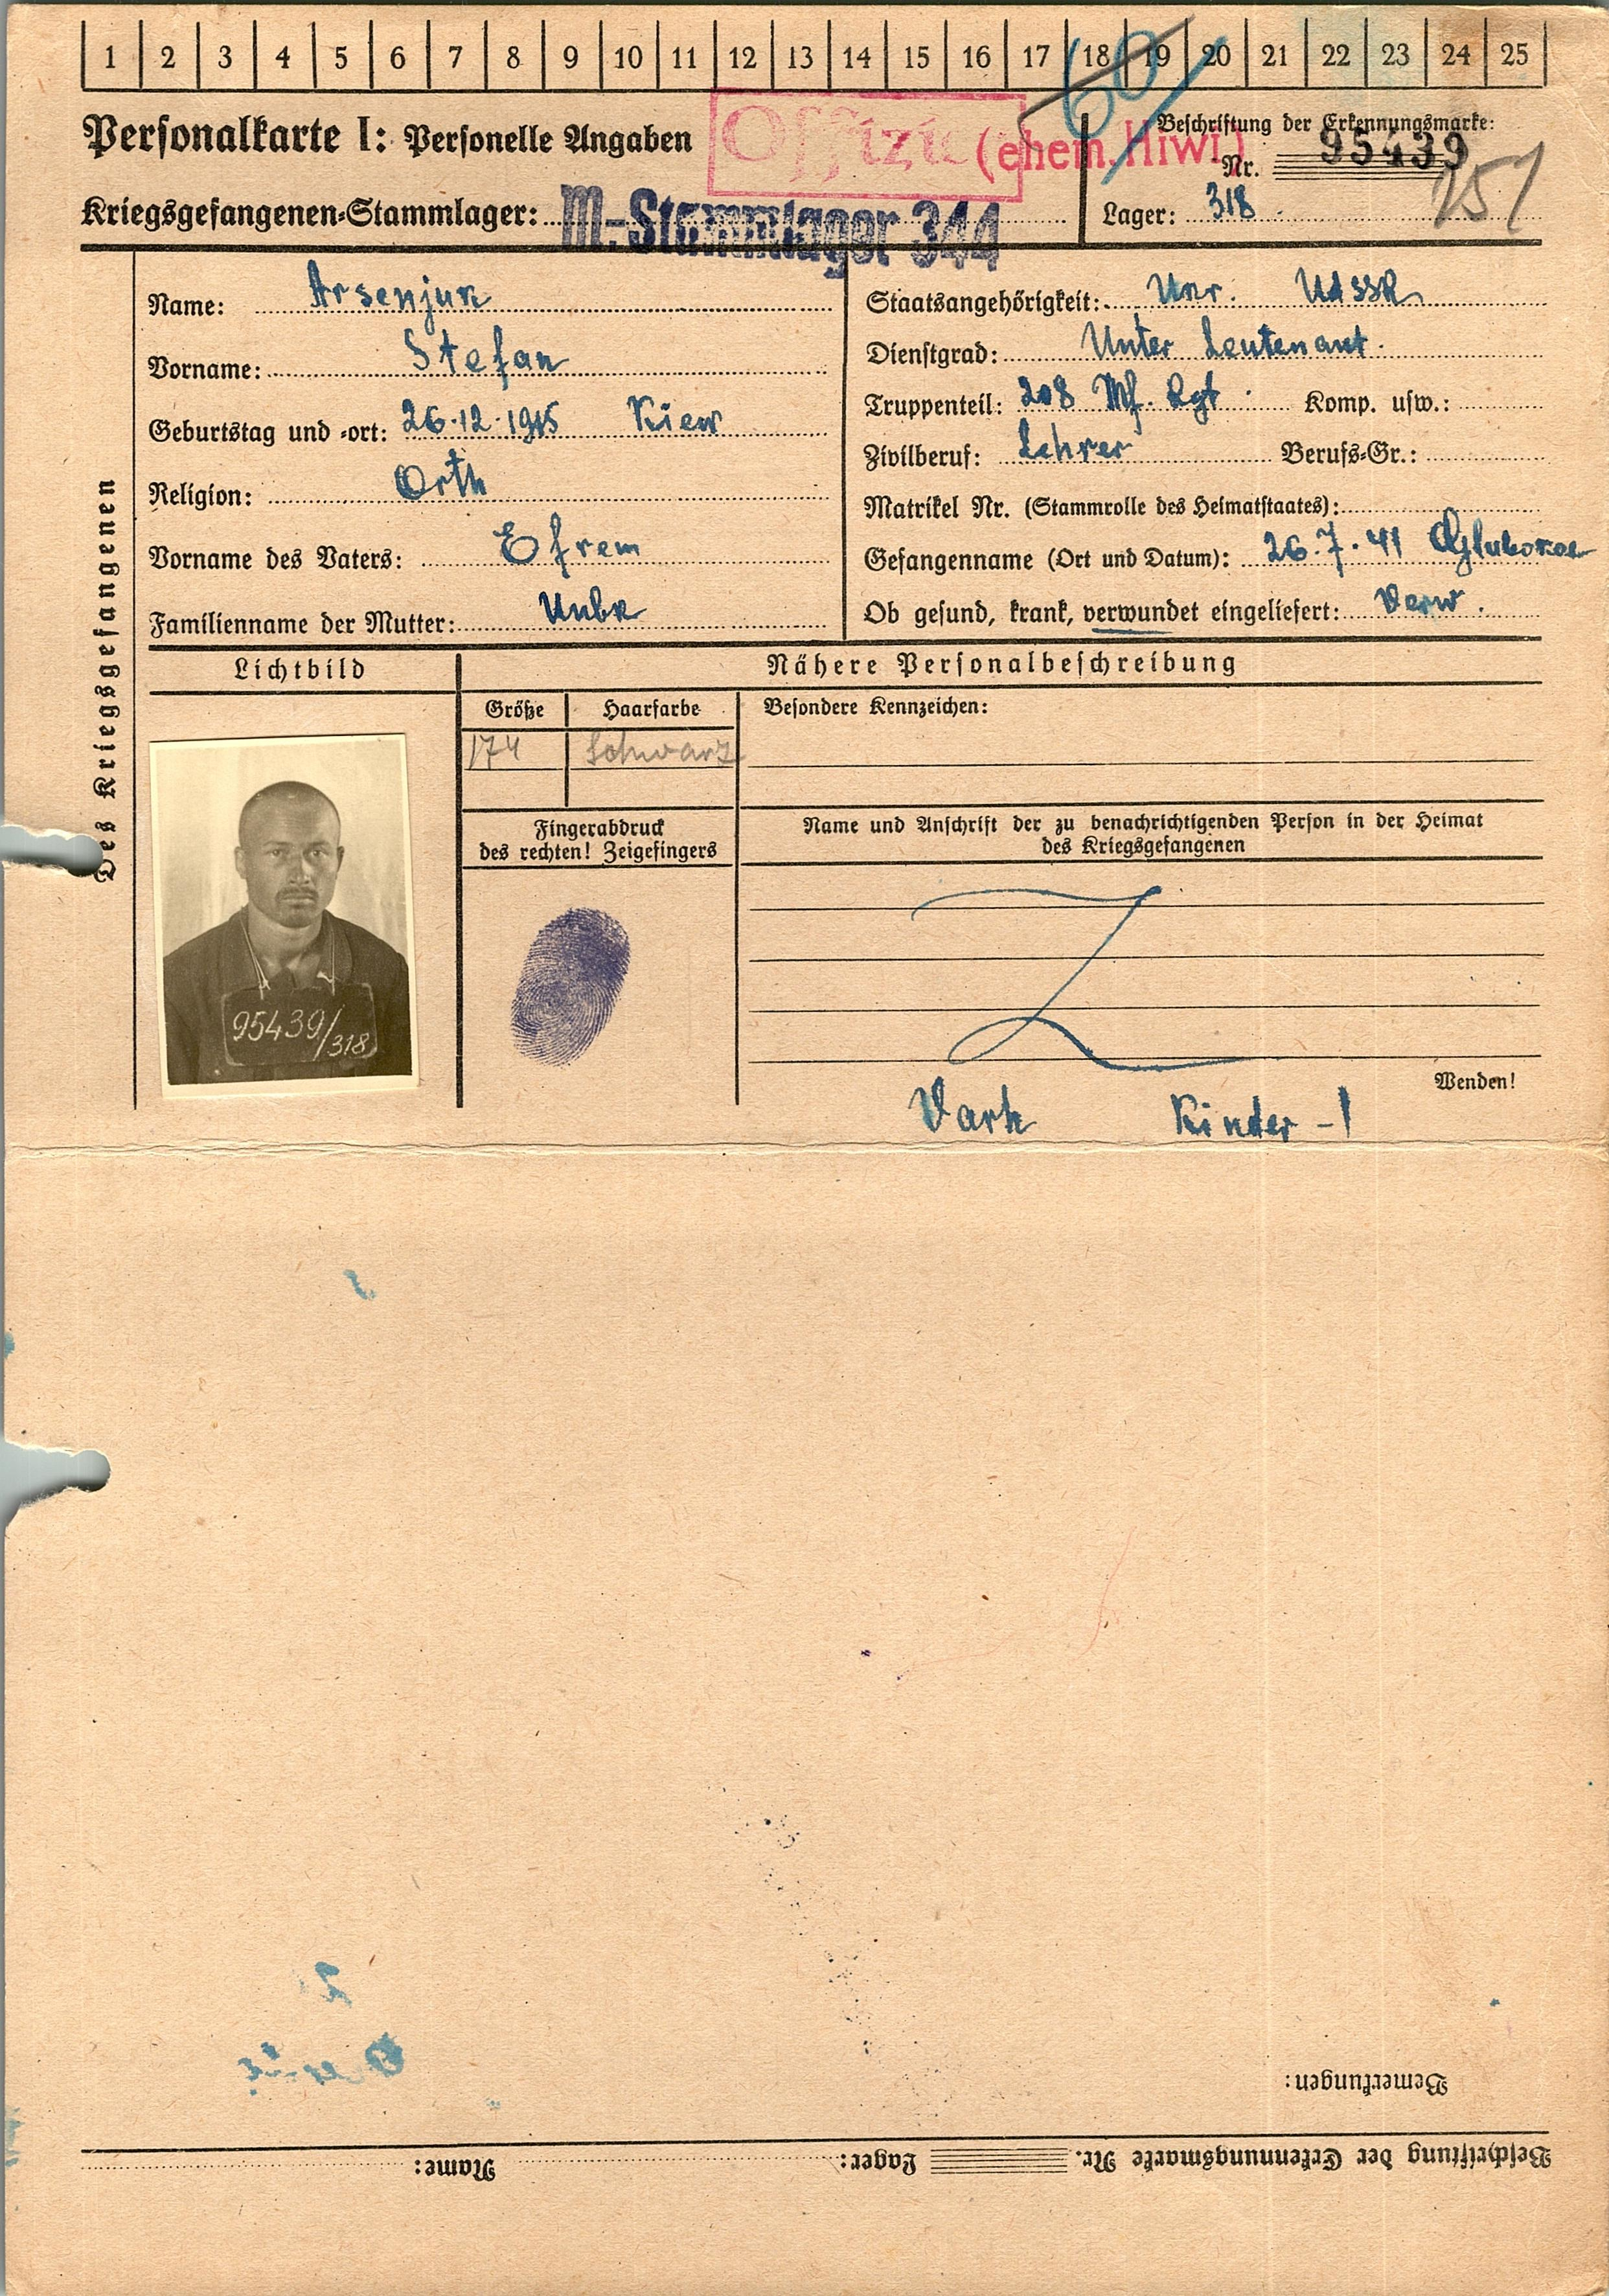 1 2 3 4 5 6 7 8 9 10 11 12 13 14 15 16 17 18 19 20 21 22 23 24 25
60
Personalkarte I: Personelle Angaben
Offizier (ehem. Hiwi)
Beschriftung der Erkennungsmarke:
Nr. 95439
251
Kriegsgefangenen-Stammlager: M.-Stammlager 344
Lager: 318
Des Kriegsgefangenen
Name: Arsenjuk
Vorname: Stefan
Geburtstag und -ort: 26.12.1915 Kiew
Religion: Orth
Vorname des Vaters: Efrem
Familienname der Mutter: Unbk
Staatsangehörigkeit: Ukr. UdSSR
Dienstgrad: Unter Leutenant.
Truppenteil: 208 Inf. Rgt. Komp. usw.:
Zivilberuf: Lehrer Berufs-Gr.:
Matrikel Nr. (Stammrolle des Heimatstaates):
Gefangenname (Ort und Datum): 26.7.41
Ob gesund, krank, verwundet eingeliefert: Verw.
Lichtbild
Nähere Personalbeschreibung
Größe Haarfarbe
174 schwarz
Besondere Kennzeichen:
Fingerabdruck
des rechten! Zeigefingers
Name und Anschrift der zu benachrichtigenden Person in der Heimat
des Kriegsgefangenen
95439/318
Wenden!
Kinder - 1
Bemerkungen:
Beschriftung der Erkennungsmarke Nr. Lager: Name: